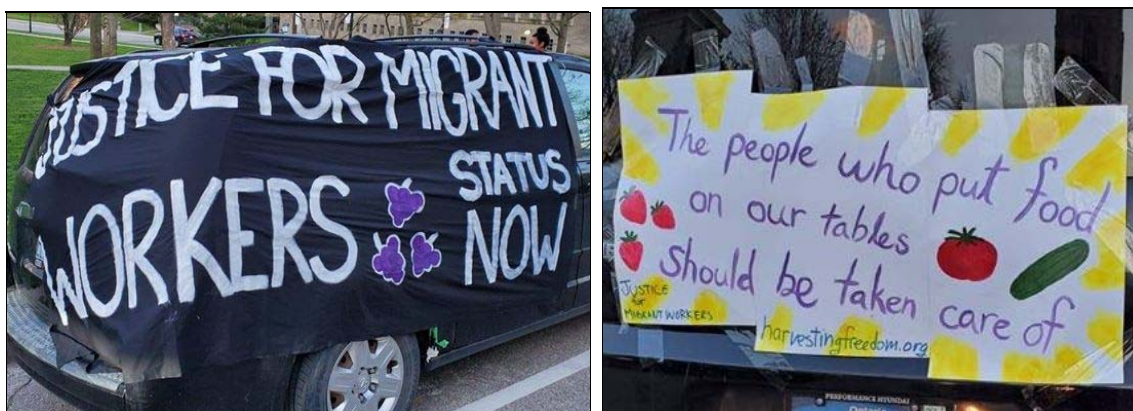 JUSTICE FOR MIGRANT
WORKERS
STATUS
NOW
The people who put food
on our tables
should be taken care of
JUSTICE
for
MIGRANT WORKERS
harvestingfreedom.org
PERFORMANCE HYUNDAI